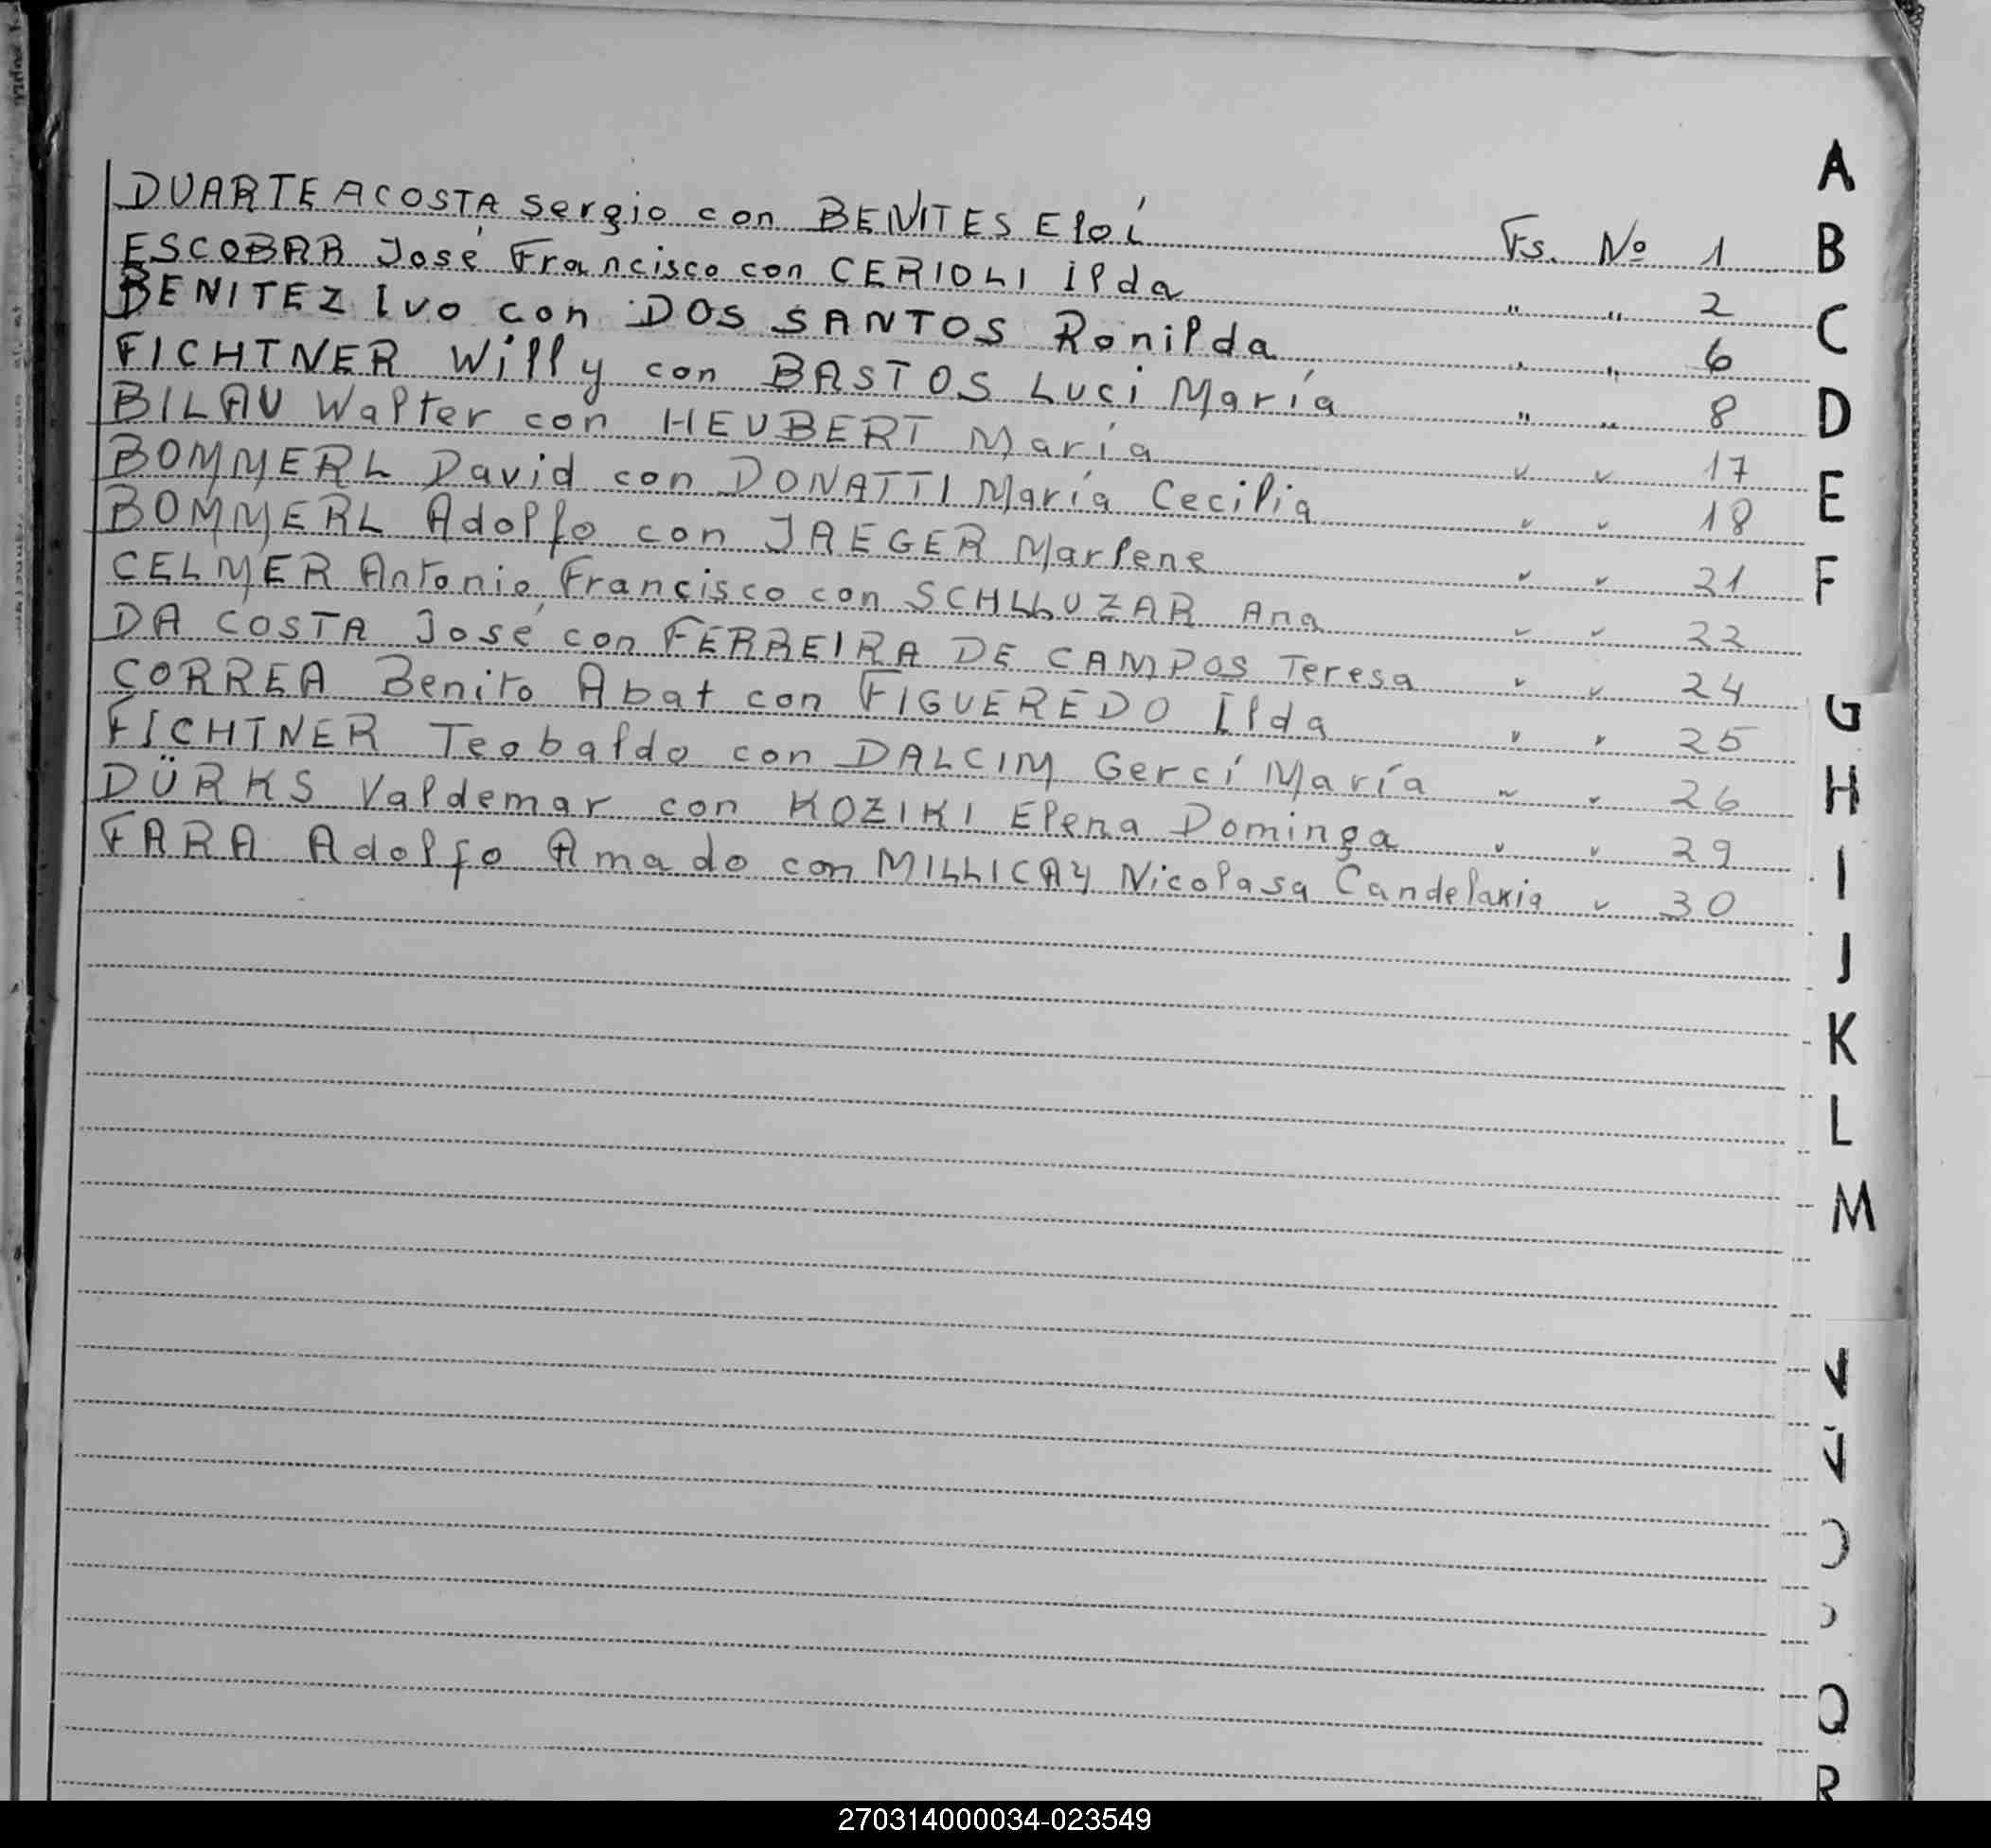 DUARTE ACOSTA Sergio con BENITES Eloí Fs. Nº 1
ESCOBAR José Francisco con CERIOLI Ilda " " 2
BENITEZ Ivo con DOS SANTOS Ronilda " " 6
FICHTNER Willy con BASTOS Luci María " " 8
BILAU Walter con HEUBERT María " " 17
BOMMERL David con DONATTI María Cecilia " " 18
BOMMERL Adolfo con JAEGER Marlene " " 21
CELMER Antonio Francisco con SCHLLUZAR Ana " " 22
DA COSTA José con FERREIRA DE CAMPOS Teresa " " 24
CORREA Benito Abat con FIGUEREDO Ilda " " 25
FICHTNER Teobaldo con DALCIM Gercí María " " 26
DÜRKS Valdemar con KOZIKI Elena Dominga " " 29
FARA Adolfo Amado con MILLICAY Nicolasa Candelaria " 30
A
B
C
D
E
F
G
H
I
J
K
L
M
Q
R
270314000034-023549